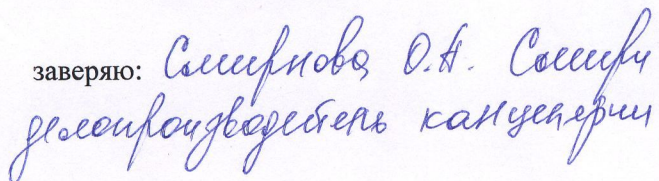 заверяю: Смирнова О.А. Смирн
делопроизводитель канцелярии